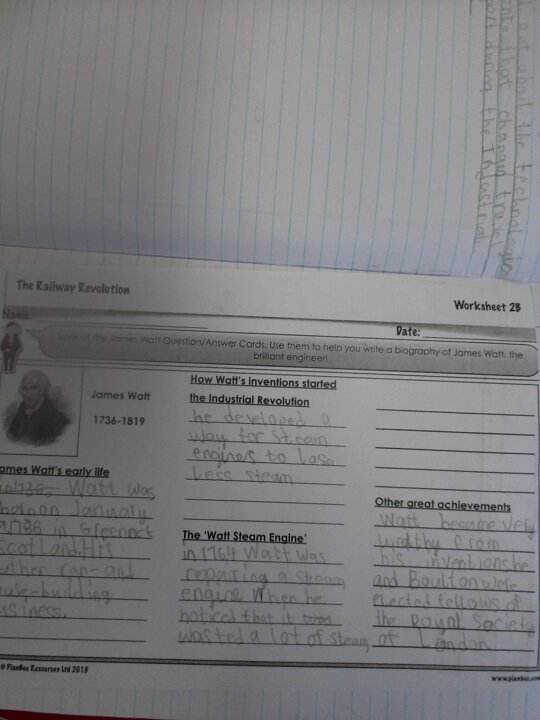 out about the technologica
ents that changed travel
port during the Industrial
The Railway Revolution
Worksheet 2B
Name
Date:
Look at the James Watt Question/Answer Cards. Use them to help you write a biography of James Watt, the
brilliant engineer!
James Watt
1736-1819
ames Watt's early life
in 1736, Watt was
January
in Greenock
Scotland. His
ather ran and
ouse-building
usiness.
How Watt's inventions started
the Industrial Revolution
he developed a
way for steam
engines to lose
Less steam
The 'Watt Steam Engine'
in 1764 Watt was
repairing a steam
engine when he
noticed that it was
wasted a lot of steam
Other great achievements
Watt became very
wealthy from
his inventions he
and Boulton were
elected fellows of
the Royal Society
of London.
© PlanBee Resources Ltd 2015
www.planbee.com